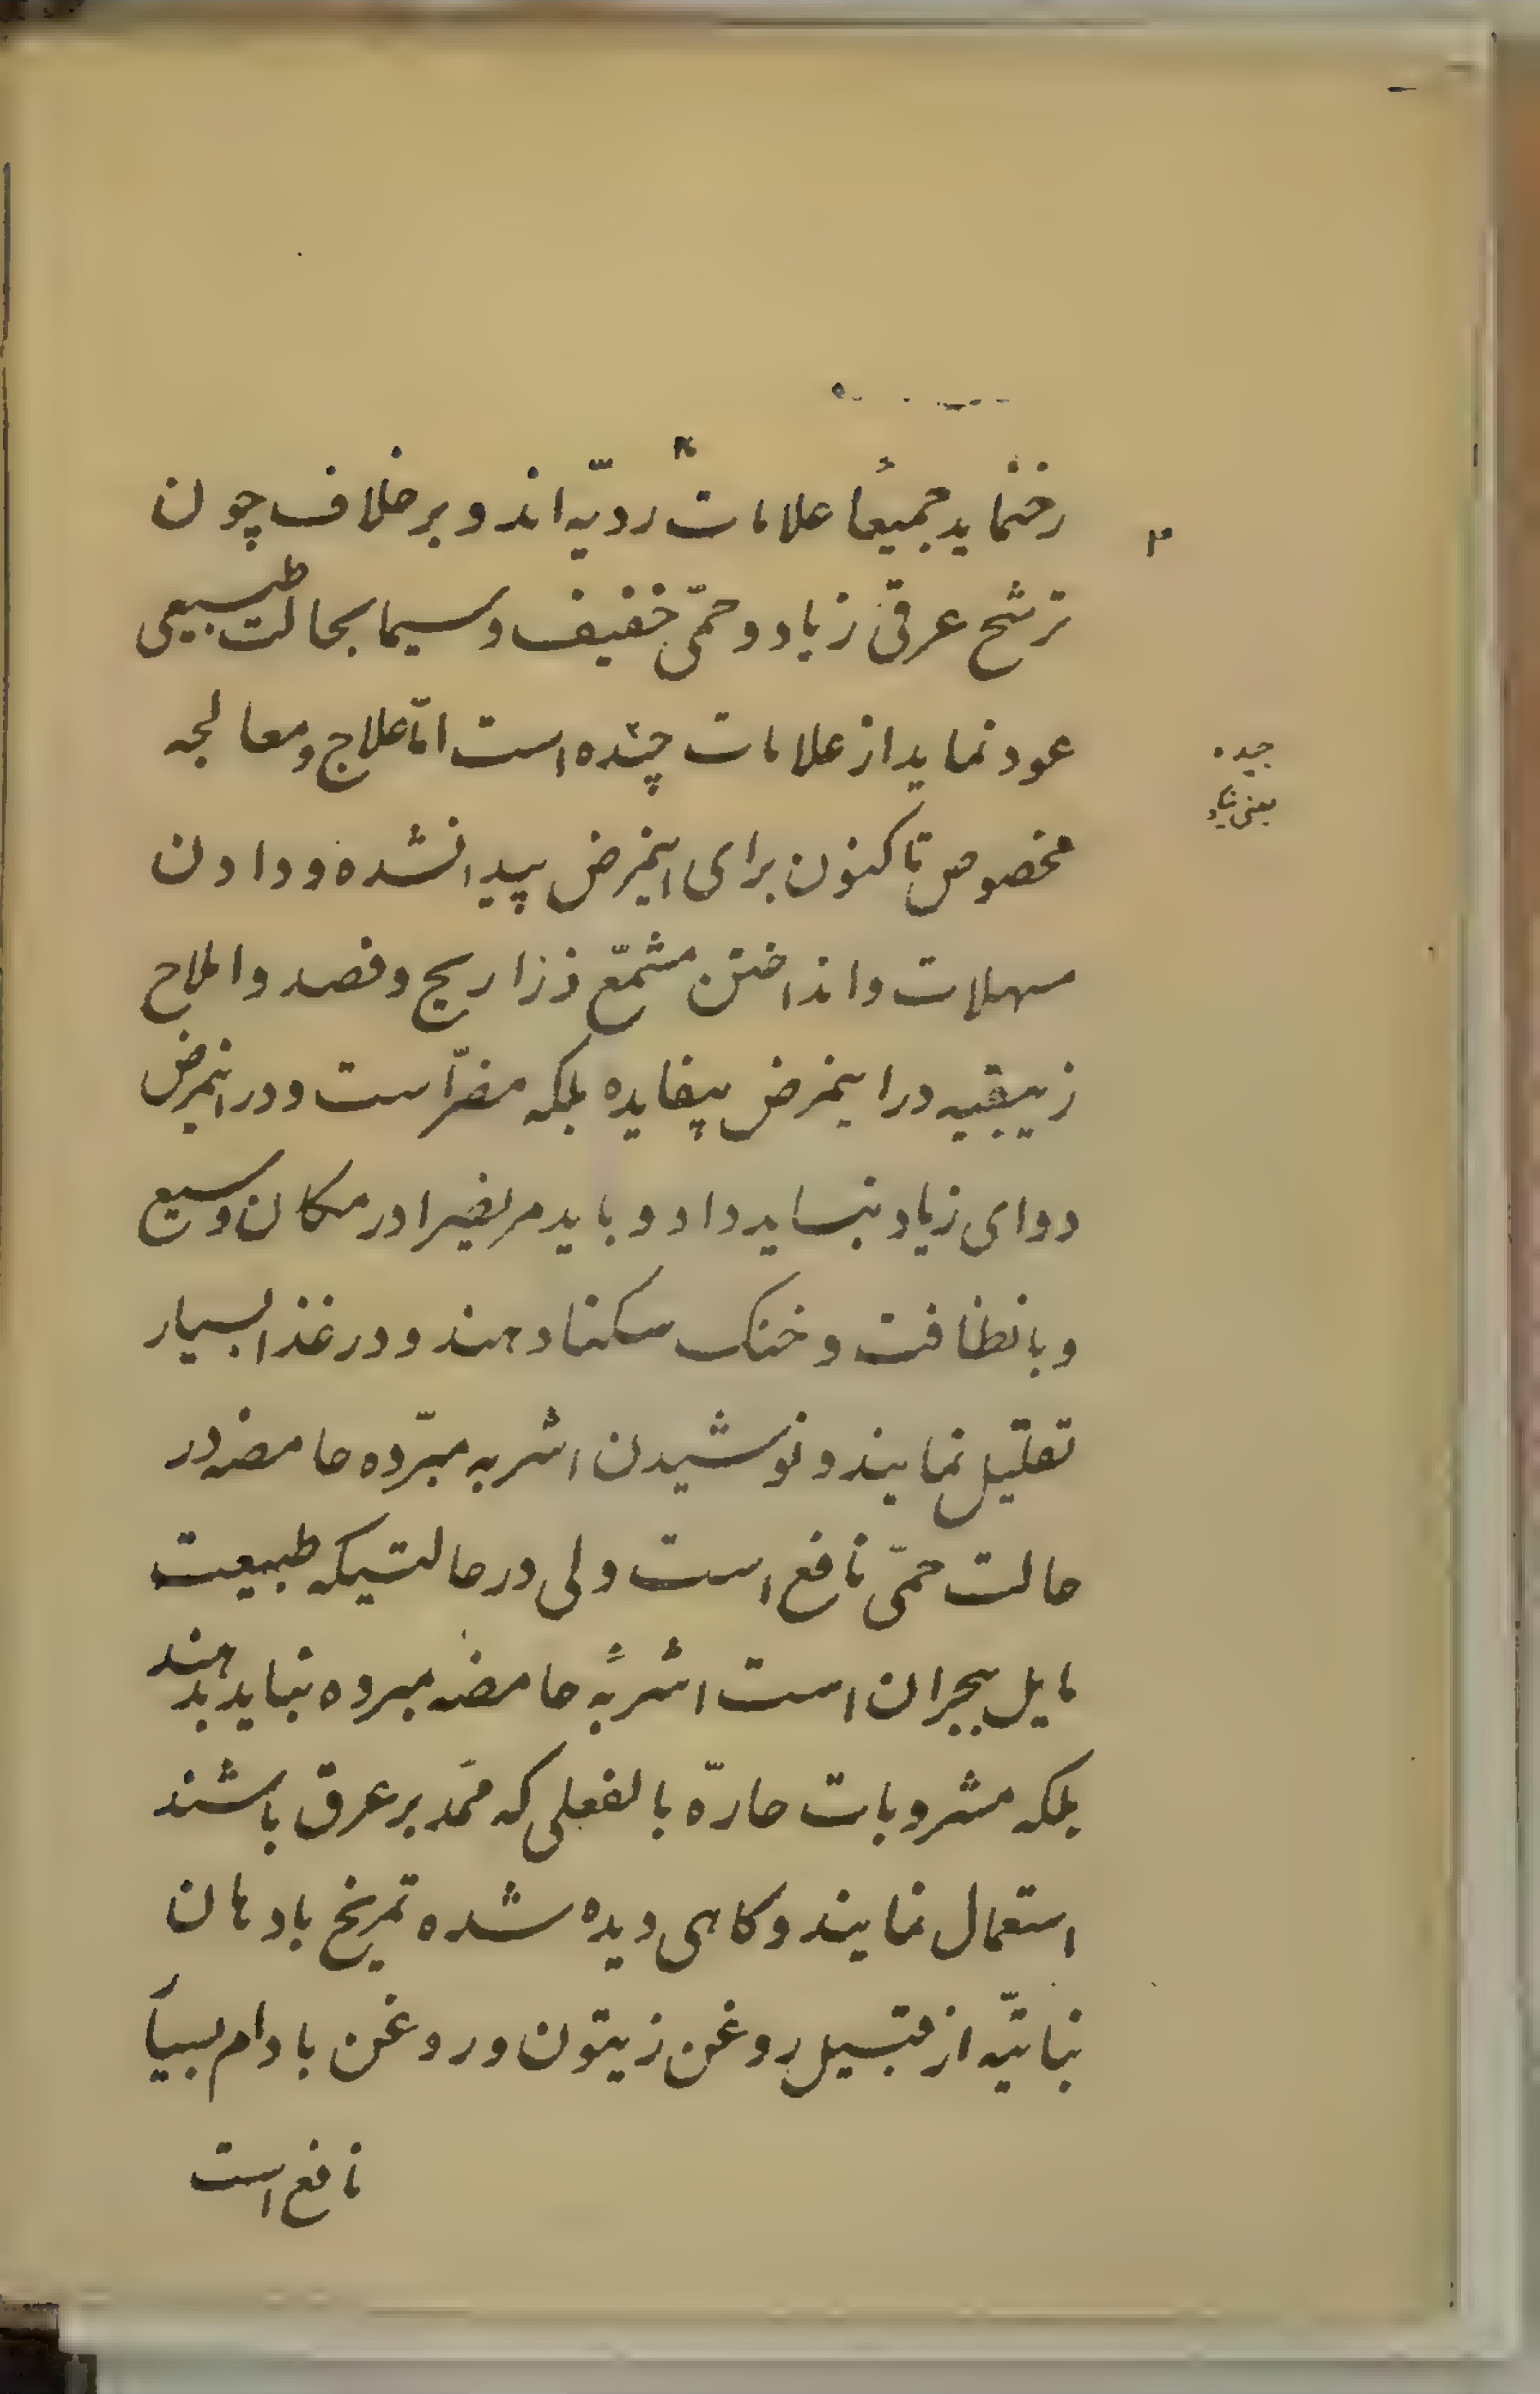 رخنماید جمیعاً علامات ردیّه اند و برخلاف چون
ترشح عرق زیاد و حمّی خفیف و سیما بحالت طبیعی
عود نماید از علامات جیّده است امّا علاج و معالجه
جیده
یعنی نیک
مخصوص تاکنون برای اینمرض پیدا نشده و دادن
مسهلات و انداختن مشمّع ذراریح و فصد و املاح
زیبقیه در اینمرض بیفایده بلکه مضرّ است و در اینمرض
دوای زیاد نباید داد و باید مریضرا در مکان وسیع
و بانظافت و خنک سکنا دهند و در غذا بسیار
تقلیل نمایند و نوشیدن اشربه مبرّده حامضه در
حالت حمّی نافع است ولی در حالتیکه طبیعت
مایل ببحران است اشربهٔ حامضه مبرده نباید بدهند
بلکه مشروبات حارّه بالفعلی که ممّد بر عرق باشند
استعمال نمایند و کاهی دیده شده تمریخ بادهان
نباتیّه از قبیل روغن زیتون و روغن بادام بسیا
نافع است